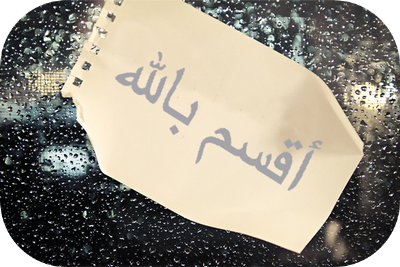 أقسم بالله